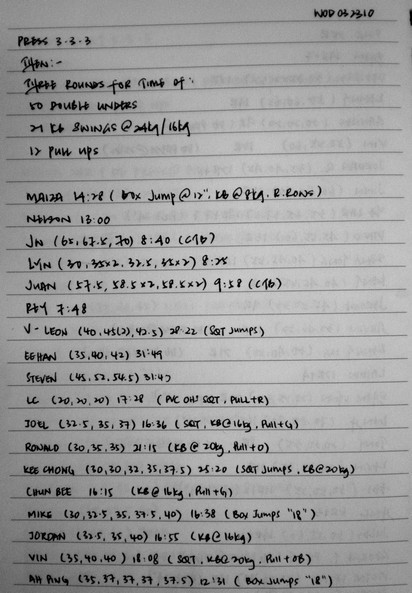 WOD 032310
PRESS 3-3-3
THEN:-
THREE ROUNDS FOR TIME OF:
50 DOUBLE UNDERS
21 KB SWINGS @ 24kg/16kg
12 PULL UPS
MAIZA 14:28 (BOX Jump @ 12", KB @ 8kg, R.ROWS)
NELSON 13:00
JN (65, 67.5, 70) 8:40 (CTB)
LYN (30, 35x2, 32.5, 35x2) 8:25
JUAN (57.5, 58.5x2, 58.5x2) 9:58 (CTB)
REY 7:48
V-LEON (40, 45(2), 42.5) 28:22 (SQT Jumps)
EEHAN (35, 40, 42) 31:49
STEVEN (45, 52, 54.5) 31:47
LC (20, 20, 20) 17:28 (PVC OH' SQT, PULL+R)
JOEL (32.5, 35, 37) 16:36 (SQT, KB @ 16kg, Pull+G)
RONALD (30, 35, 35) 21:15 (KB @ 20kg, Pull+O)
KEE CHONG (30, 30, 32, 35, 37.5) 25:20 (SQT Jumps, KB @ 20kg)
CHUN BEE 16:15 (KB @ 16kg, Pull+G)
MIKE (30, 32.5, 35, 37.5, 40) 16:38 (Box Jumps "18")
JORDAN (32.5, 35, 40) 16:55 (KB @ 16kg)
VIN (35, 40, 40) 18:08 (SQT, KB @ 20kg, Pull+OB)
AH PING (35, 37, 37, 37, 37.5) 12:31 (Box Jumps "18")